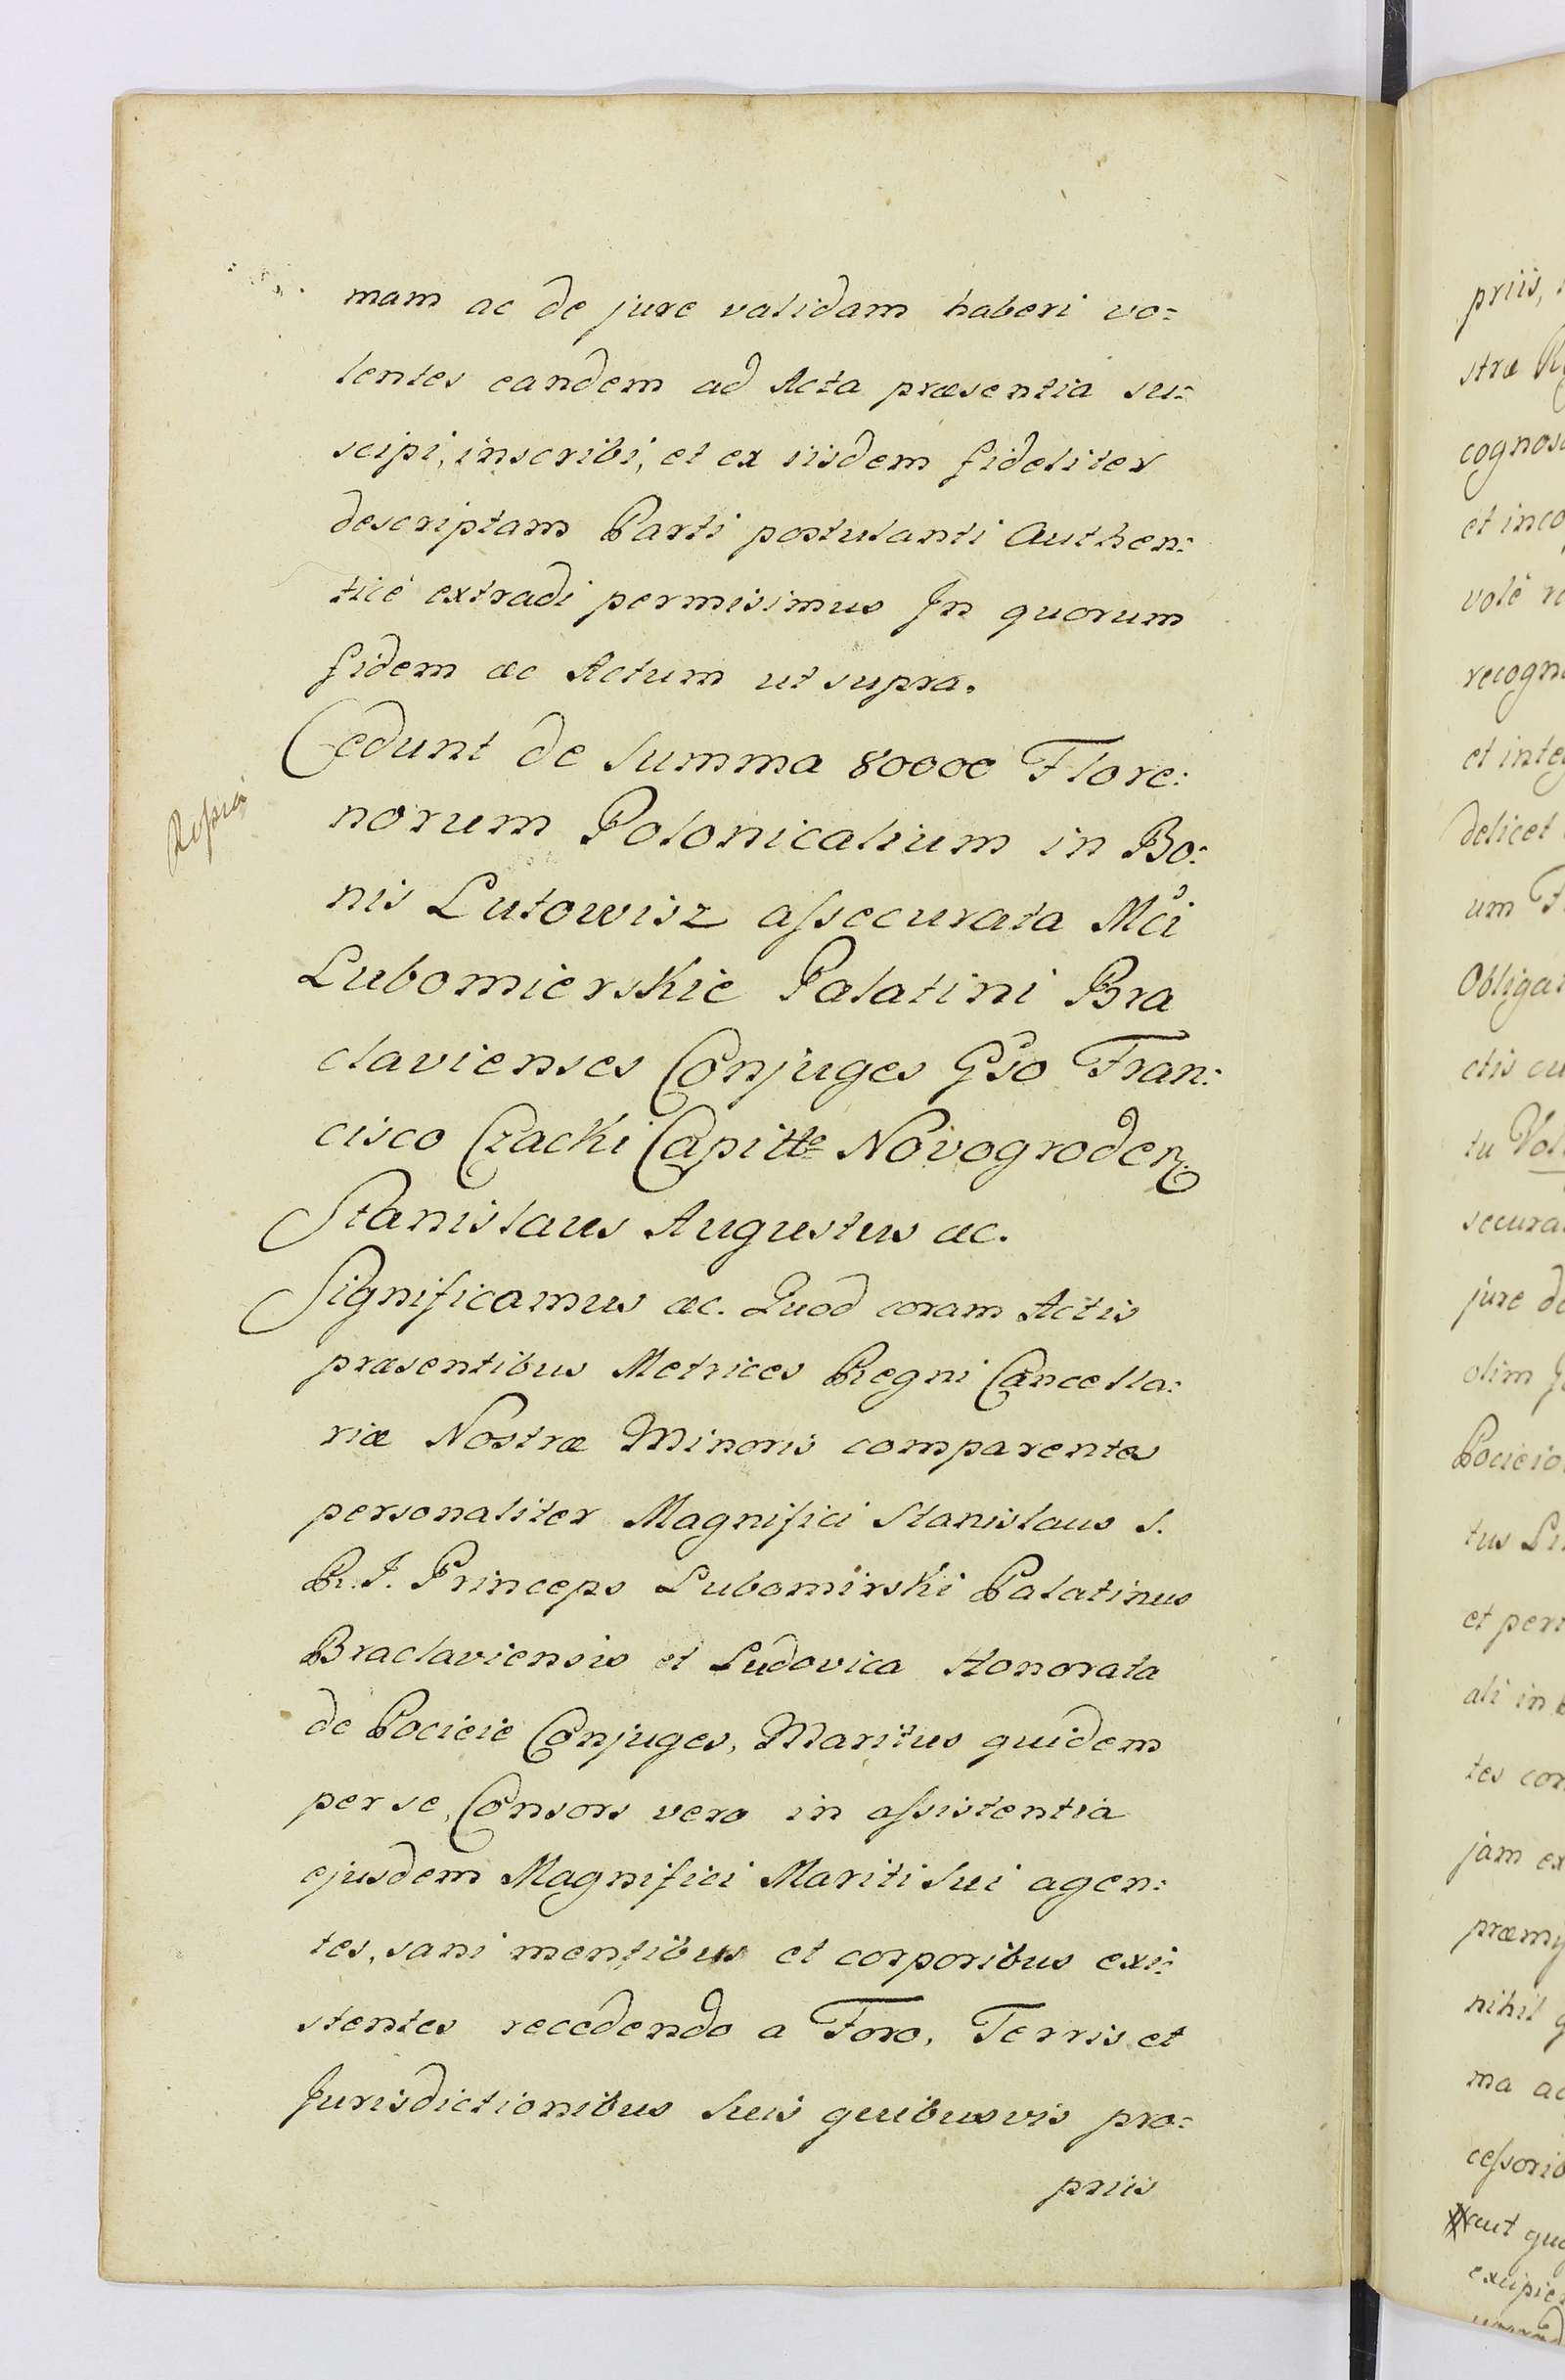 mam ac de jure validam haberi vo=
lentes eandem ad Acta præsentia su=
scipi, inscribi, et ex iisdem fideliter
descriptam Parti postulanti Authen:
ticè extradi permisimus In quorum
fidem æc Actum ut supra.
Cedunt de Summa 80000 Flore:
norum Polonicalium in Bo:
nis Lutowisz assecurata Mci
Lubomierskie Palatini Bra
clavienses Conjuges Gso Fran:
cisco Czacki Capitte Novogroden
Stanislaus Augustus æc.
Significamus æc. Quod coram Actis
præsentibus Metrices Regni Cancella:
riæ Nostræ Minoris comparentes
personaliter Magnifici Stanislaus S.
R. I. Princeps Lubomirski Palatinus
Braclaviensis et Ludovica Honorata
de Pocieie Conjuges, Maritus quidem
per se, Consors vero in assistentia
ejusdem Magnifici Mariti Sui agen:
tes, sani mentibus et corporibus exi:
stentes recedendo a Foro, Terris et
Jurisdictionibus Suis quibusvis pro=
priis
priis,
stræ
cognos
et inco
volè
recogn
et inte
delicet
um
Obligat
ctis cu
tu Vol
secura
jure de
olim
Pocieio
tus
et per
ali in
tes con
jam ex
præmy
nihil
ma ac
cessorib
aut qu
excipie